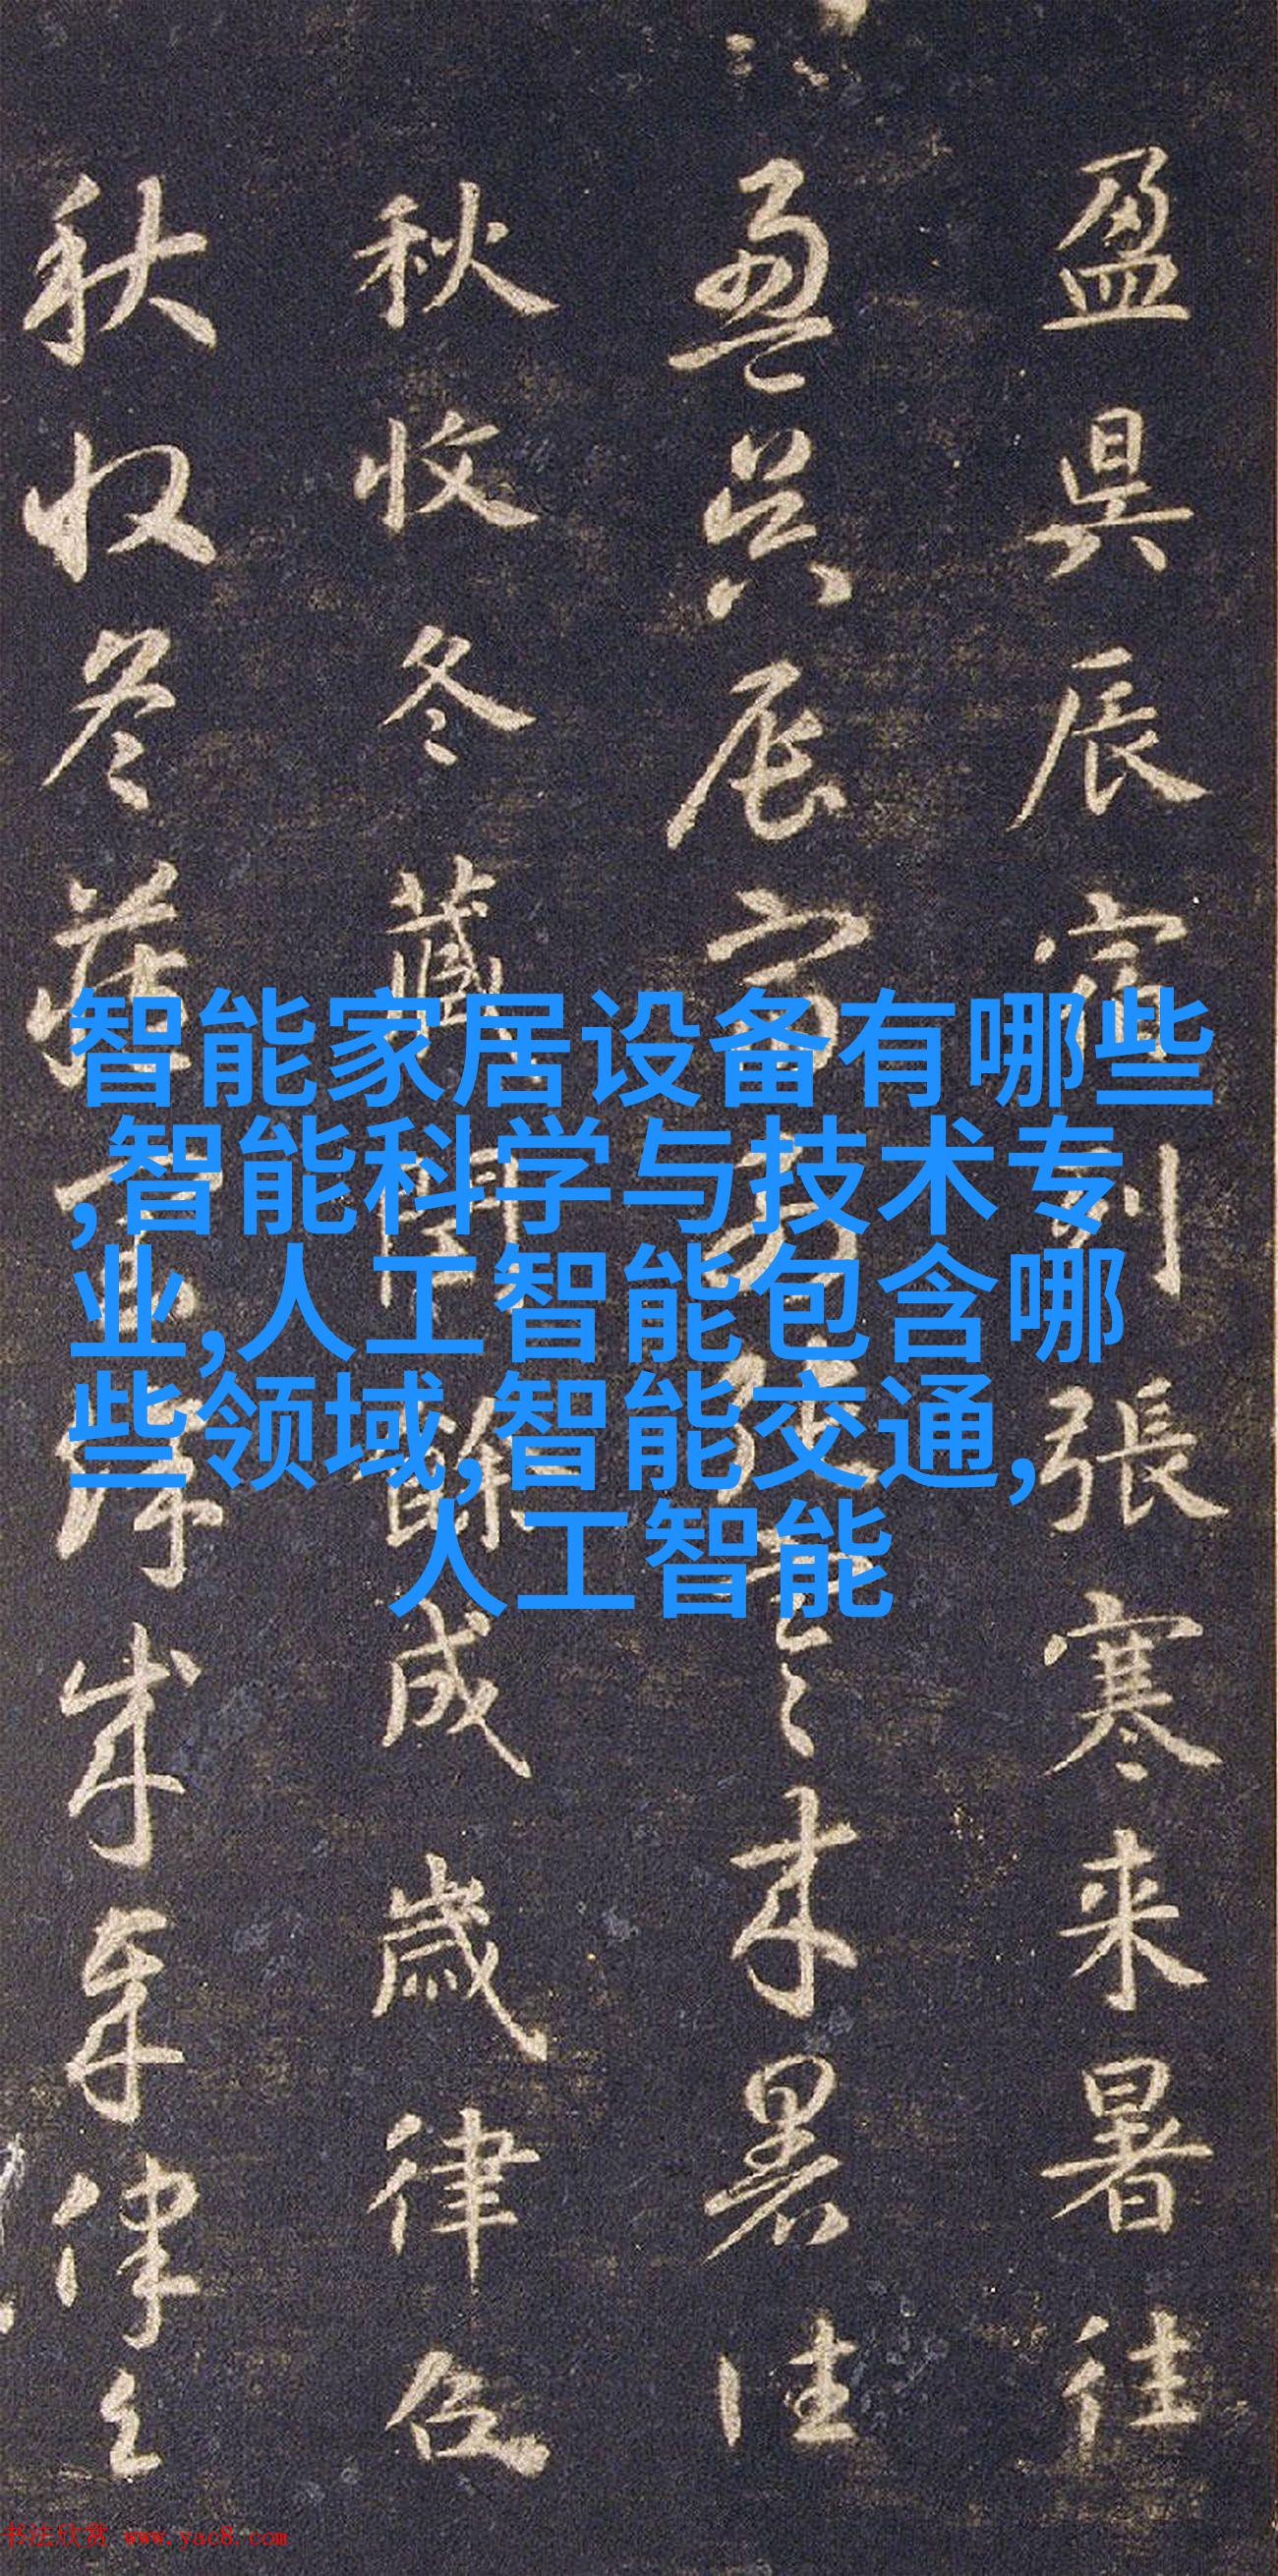 盈昃辰宿列張寒来暑往
盈昃辰宿列張寒来暑往
秋收冬藏閏餘成歲律召
秋收冬藏閏餘成歲律召
智能家居设备有哪些
,智能科学与技术专
业,人工智能包含哪
些领域,智能交通,
人工智能
书法欣赏 www.yac8.com